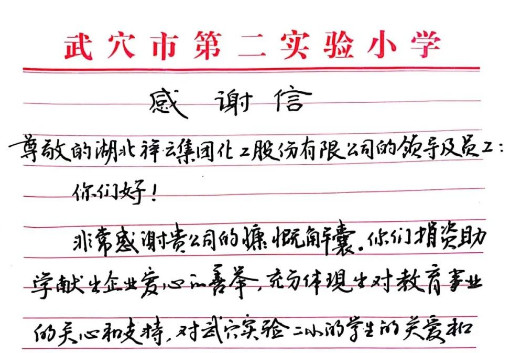 武穴市第二实验小学
感谢信
尊敬的湖北祥云集团化工股份有限公司的领导及员工:
你们好!
非常感谢贵公司的慷慨解囊。你们捐资助
学献出企业爱心的善举,充分体现出对教育事业
的关心和支持,对武穴实验二小的学生的关爱和